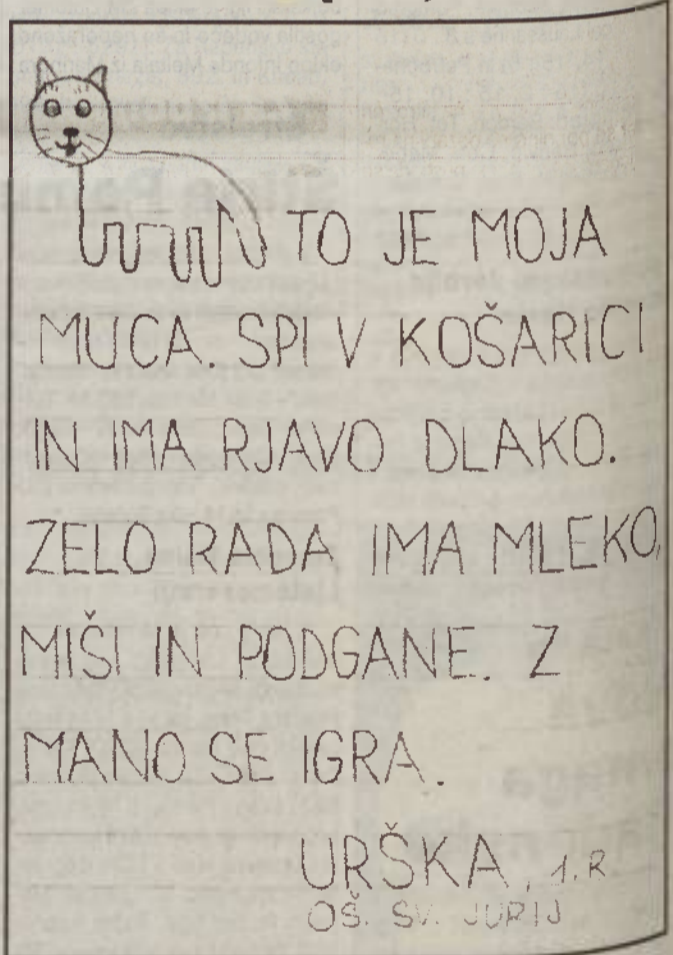 TO JE MOJA
MUCA. SPI V KOŠARICI
IN IMA RJAVO DLAKO.
ZELO RADA IMA MLEKO,
MIŠI IN PODGANE. Z
MANO SE IGRA.
URŠKA, 1. R.
OŠ. SV. JURIJ